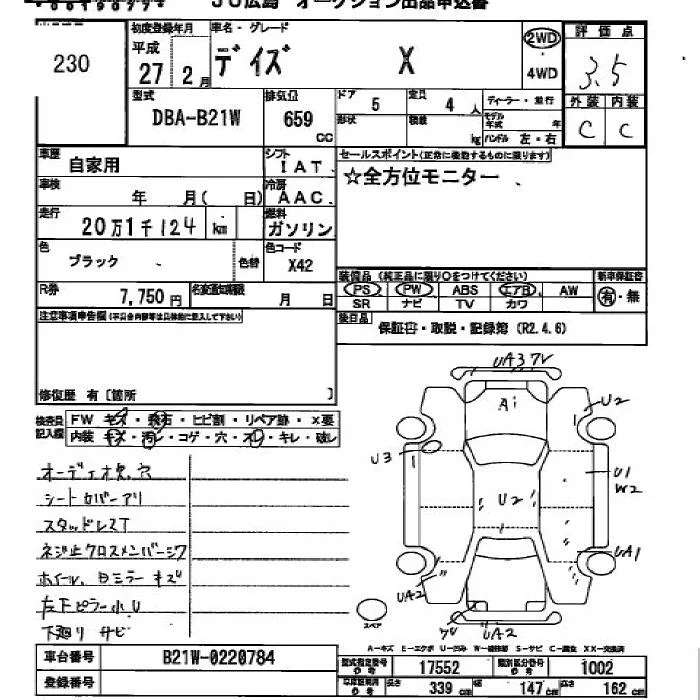 JU広島 オークション出品申込書
230
初度登録年月
平成
27年 2月
車名・グレード
デイズ X
2WD
・
4WD
評価点
3.5
外装 内装
C C
型式
DBA-B21W
排気量
659 cc
ドア 5
定員 4人
ディーラー・並行
形状
積載 kg
モデル年式 年
ハンドル 左・右
車歴 自家用
シフト IAT
セールスポイント(正常に機能するものに限ります)
☆全方位モニター
車検 年 月( 日)
冷房 AAC
走行 20万1千124 km
燃料 ガソリン
色 ブラック
色替
色コード X42
装備品(純正品に限り○をつけてください)
新車保証書
PS PW ABS エアB AW
SR ナビ TV カワ
有・無
R券 7,750円
名変通知期限 月 日
後日品
保証書・取説・記録簿(R2.4.6)
注意事項申告欄(不具合内容等は具体的に記入して下さい)
修復歴 有〔箇所 〕
検査員記入欄
FW キズ・飛石・ヒビ割・リペア跡・X要
内装 キズ・汚レ・コゲ・穴・スレ・キレ・破レ
オーディオ欠、穴
シートカバーアリ
スタッドレスT
ネジ止クロスメンバーシワ
ホイール、Dミラーキズ
左下ピラー小U
下廻りサビ
UA3 7V
Ai
U2
U3
U1
W2
U2
UA1
UA2
7V UA2
スペア
A-キズ E-エクボ U-凹み W-補修跡 S-サビ C-腐食 XX-交換済
車台番号 B21W-0220784
登録番号
型式指定番号 17552
類別区分番号 1002
長さ 339 cm
幅 147 cm
高さ 162 cm